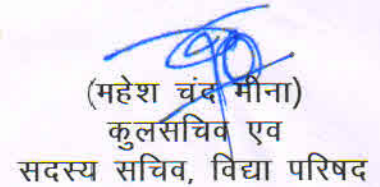 (महेश चंद मीना)
कुलसचिव एव
सदस्य सचिव, विद्या परिषद